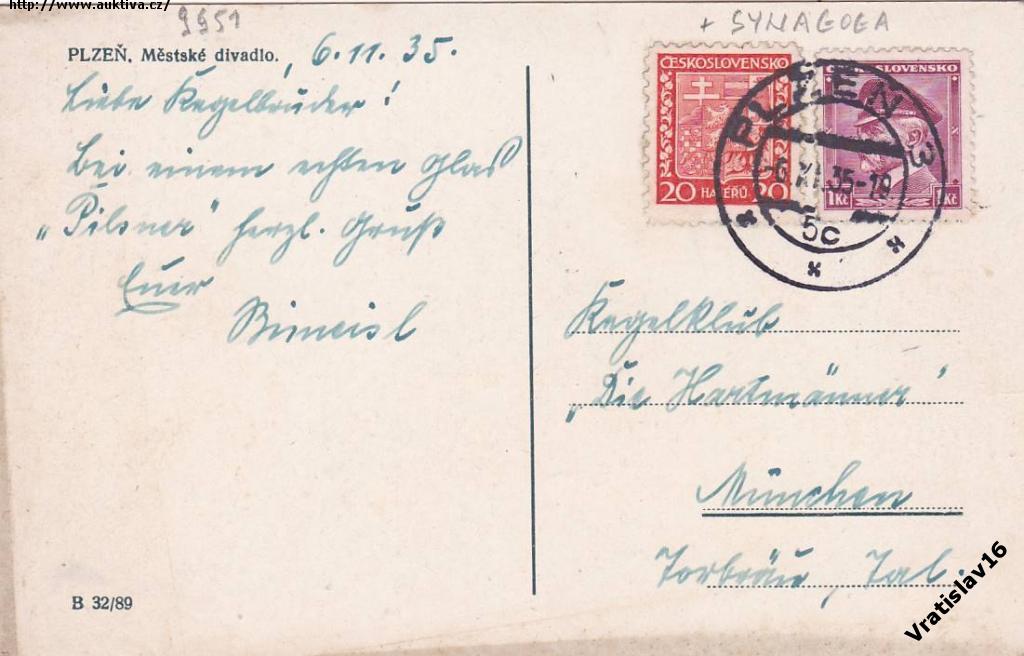 http://www.auktiva.cz/
9951
+ SYNAGOGA
PLZEŇ, Městské divadlo.
6.11.35.
Liebe Kegelbrüder!
Bei einem echten Glas
"Pilsner" herzl. Gruß
Euer
ČESKOSLOVENSKO
20 HALÉŘŮ 20
SLOVENSKO
1Kč 1Kč
PLZEŇ 3
-6.XI.35-19
5c
Kegelklub
"Die Hartmänner"
München
Torbräu Tal.
B 32/89
Vratislav16